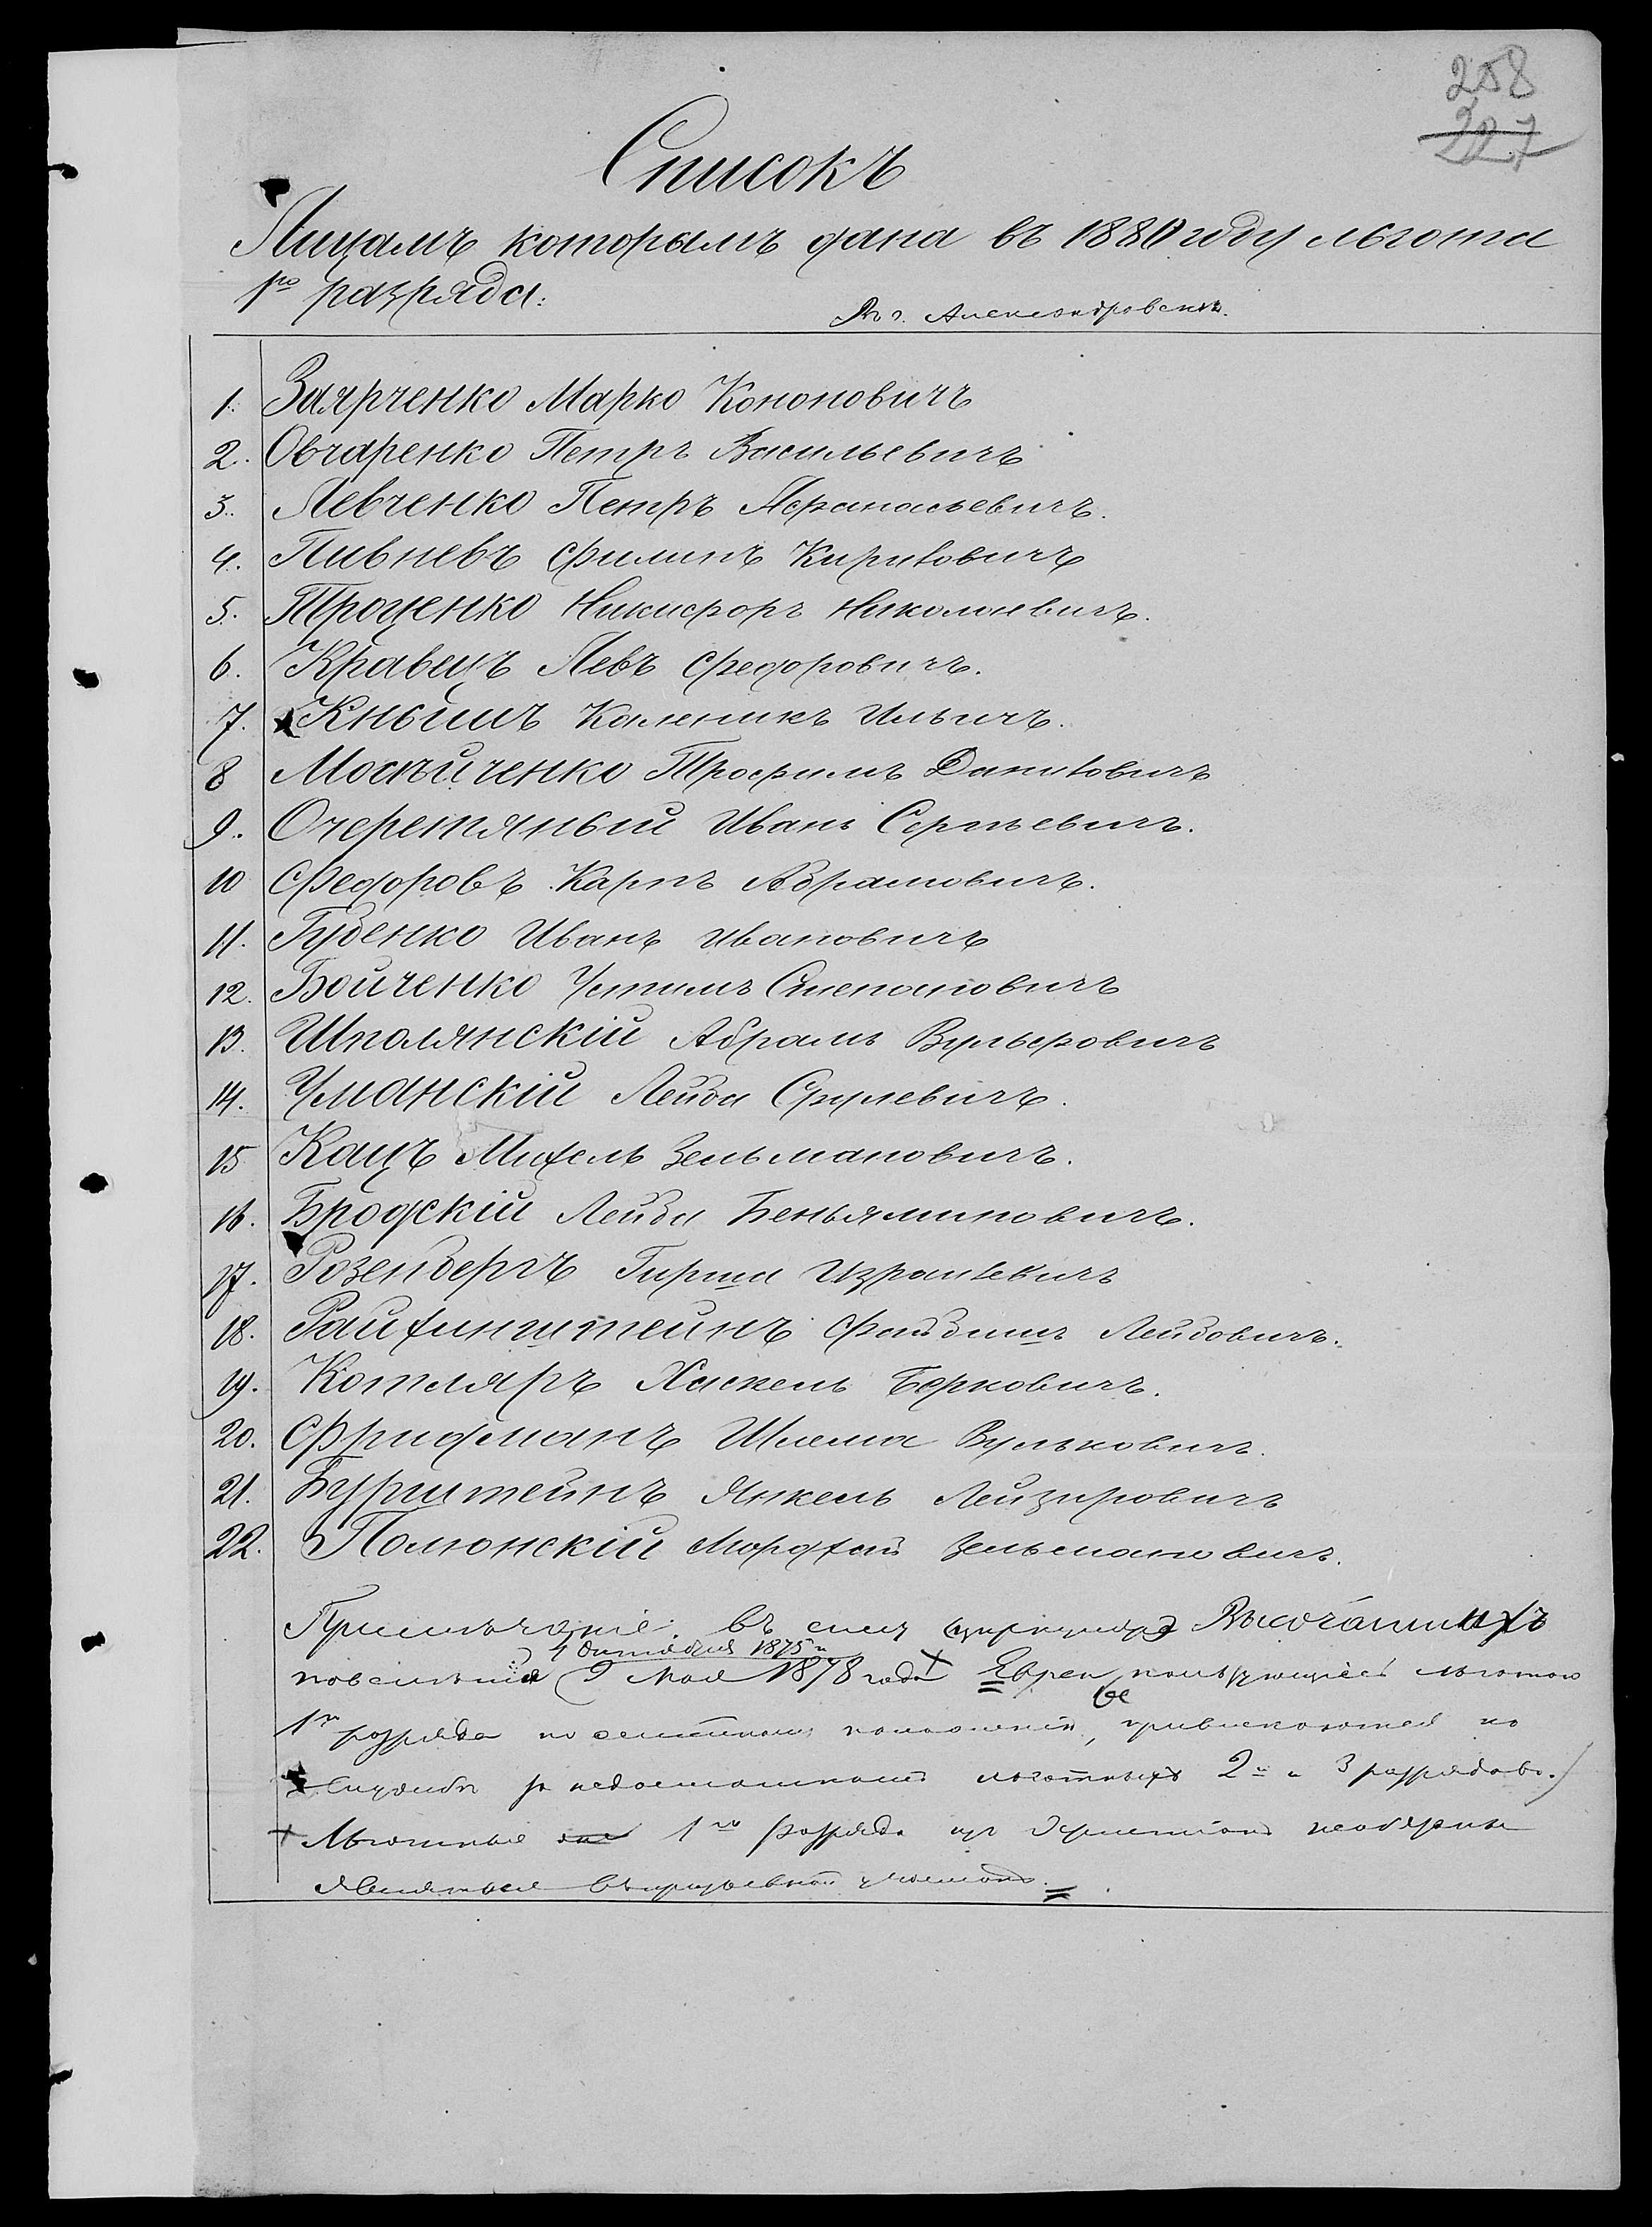 258
227
Списокъ
Лицамъ которымъ дана въ 1880 году льгота
1го разряда:
Въ г. Александровскѣ.
1. Заярченко Марко Кононовичъ
2. Овчаренко Петръ Васильевичъ
3. Левченко Петръ Афанасьевичъ.
4. Пивневъ Филипъ Кириловичъ
5. Троценко Никифоръ Николаевичъ.
6. Кравецъ Левъ Федоровичъ.
7. Кнышъ Каленикъ Ильичъ.
8 Мосѣйченко Трофимъ Даниловичъ
9. Очеретяный Иванъ Сергѣевичъ.
10 Федоровъ Карпъ Абрамовичъ.
11. Губенко Иванъ Ивановичъ
12. Бойченко Устимъ Степановичъ
13. Шполянскій Абрамъ Вульфовичъ
14. Уманскій Лейба Срулевичъ.
15 Кацъ Михель Зельмановичъ.
16. Бродскій Лейба Беньяминовичъ.
17. Розенбергъ Гирша Израилевичъ
18. Райхинштейнъ Файбишъ Лейбовичъ.
19. Котляръ Хаскель Берковичъ.
20. Фридманъ Шлема Вульковичъ.
21. Бурштейнъ Янкель Лейзеровичъ
22. Полонскій Мордхай Зельмановичъ.
Примѣчаніе: въ силу циркуляра Высочайшихъ
4 октября 1875 г
повелѣній 9 мая 1878 года Евреи пользующіеся льготою
1го разряда по семейному положенію, привлекаются
службѣ за недостаткомъ льготныхъ 2го и 3 разрядовъ.
Льготные 1го разряда
являться въ призывной участокъ.